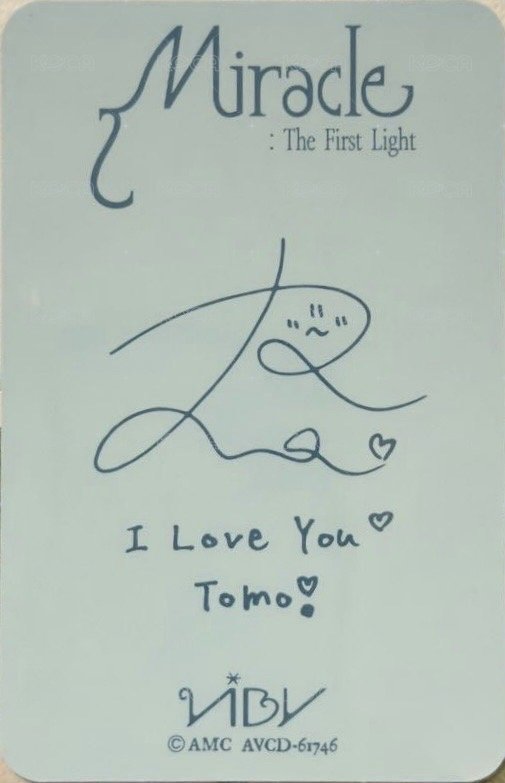 Miracle
: The First Light
I Love You♡
Tomo♡
ViBY
©AMC AVCD-61746